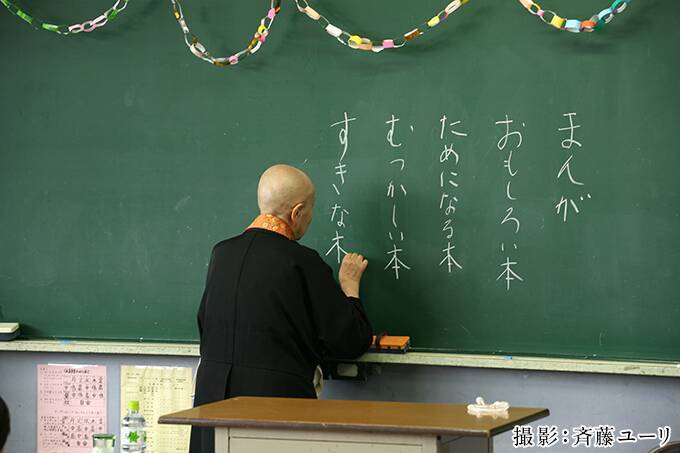 まんが
おもしろい本
ためになる本
むつかしい本
すきな本
撮影：斉藤ユーリ